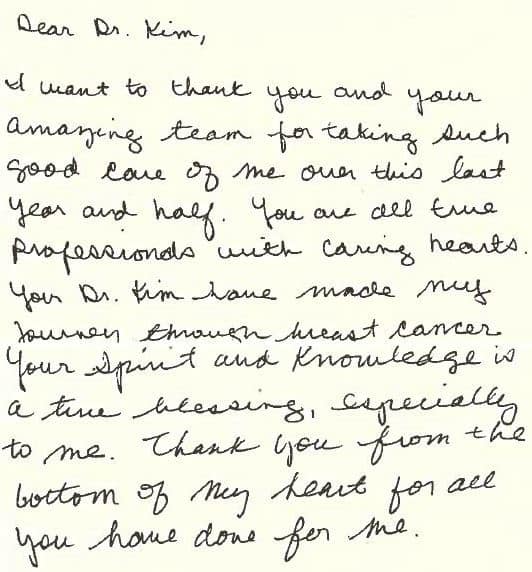 Dear Dr. Kim,
I want to thank you and your
amazing team for taking such
good care of me over this last
year and half. You are all true
professionals with caring hearts.
You Dr. Kim have made my
journey through breast cancer
Your Spirit and Knowledge is
a true blessing, especially
to me. Thank you from the
bottom of my heart for all
you have done for me.